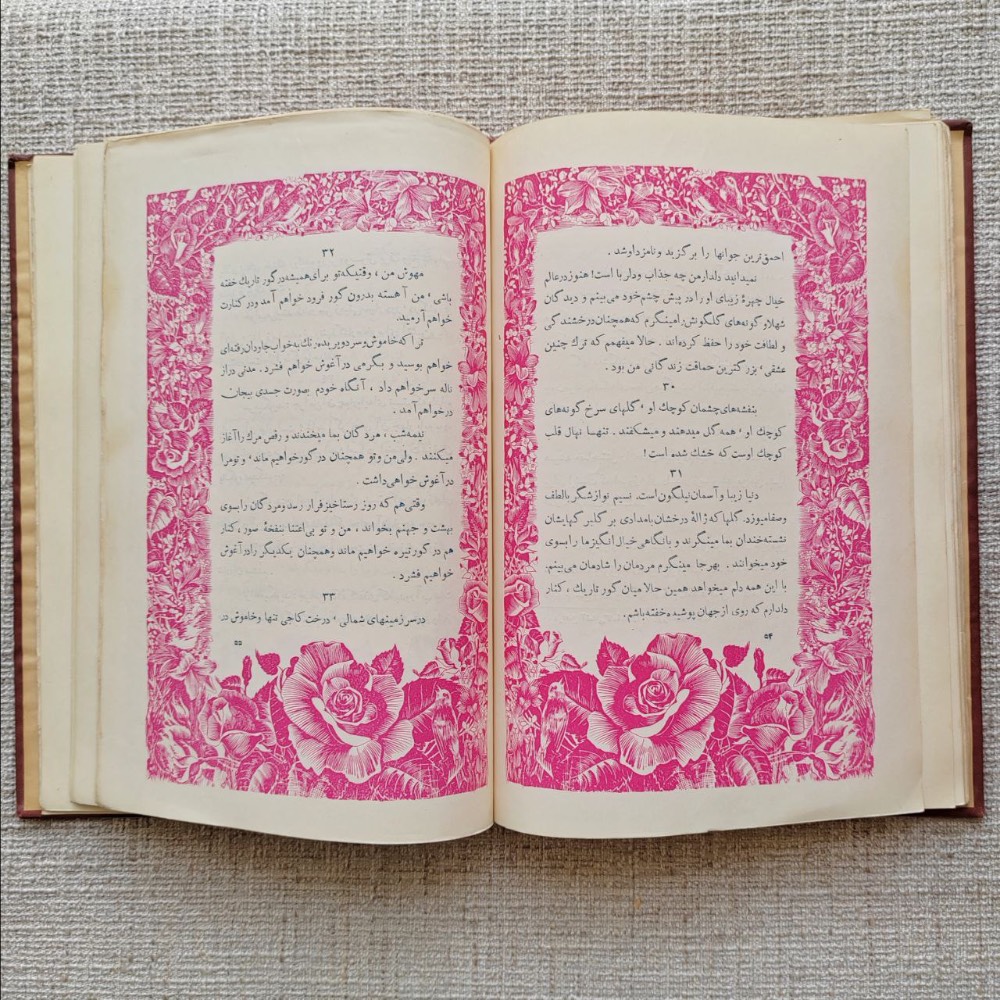 احمق‌ترین جوانها را برگزید و نامزد او شد .
نمیدانید دلدار من چه جذاب و دلربا است ! هنوز در عالم
خیال چهرهٔ زیبای او را در پیش چشم خود می‌بینم و دیدگان
شهلا و گونه‌های گلگونش را مینگرم که همچنان درخشندگی
و لطافت خود را حفظ کرده‌اند . حالا میفهمم که ترك چنین
عشقی ، بزرگترین حماقت زندگانی من بود .
۳۰
بنفشه‌های چشمان کوچك او ، گلهای سرخ گونه‌های
کوچك او ، همه گل میدهند و میشکفند . تنها نهال قلب
کوچك اوست که خشك شده است !
۳۱
دنیا زیبا و آسمان نیلگون است. نسیم نوازشگر با لطف
و صفا میوزد. گلها که ژالهٔ درخشان بامدادی بر گلبرگهایشان
نشسته خندان بما مینگرند و با نگاهی خیال انگیز ما را بسوی
خود میخوانند . بهرجا مینگرم مردمان را شادمان می‌بینم.
با این همه دلم میخواهد همین حالا میان گور تاریك ، کنار
دلدارم که روی از جهان پوشیده خفته باشم.
۵۴
۳۲
مهوش من ، وقتیکه تو برای همیشه در گور تاریك خفته
باشی ، من آهسته بدرون گور فرود خواهم آمد و در کنارت
خواهم آرمید.
ترا که خاموش و سرد و پریده رنگ به خواب جاودان رفته‌ای
خواهم بوسید و بگرمی در آغوش خواهم فشرد. مدتی دراز
ناله سر خواهم داد ، آنگاه خودم بصورت جسدی بیجان
در خواهم آمد .
نیمه‌شب ، مردگان بما میخندند و رقص مرگ را آغاز
میکنند . ولی من و تو همچنان در گور خواهیم ماند ، و تو مرا
در آغوش خواهی داشت .
وقتی هم که روز رستاخیز فرار رسد و مردگان را بسوی
بهشت و جهنم بخواند ، من و تو بی‌اعتنا بنفخهٔ صور ، کنار
هم در گور تیره خواهیم ماند و همچنان یکدیگر را در آغوش
خواهیم فشرد .
۳۳
در سرزمینهای شمالی ، درخت کاجی تنها و خاموش در
۵۵